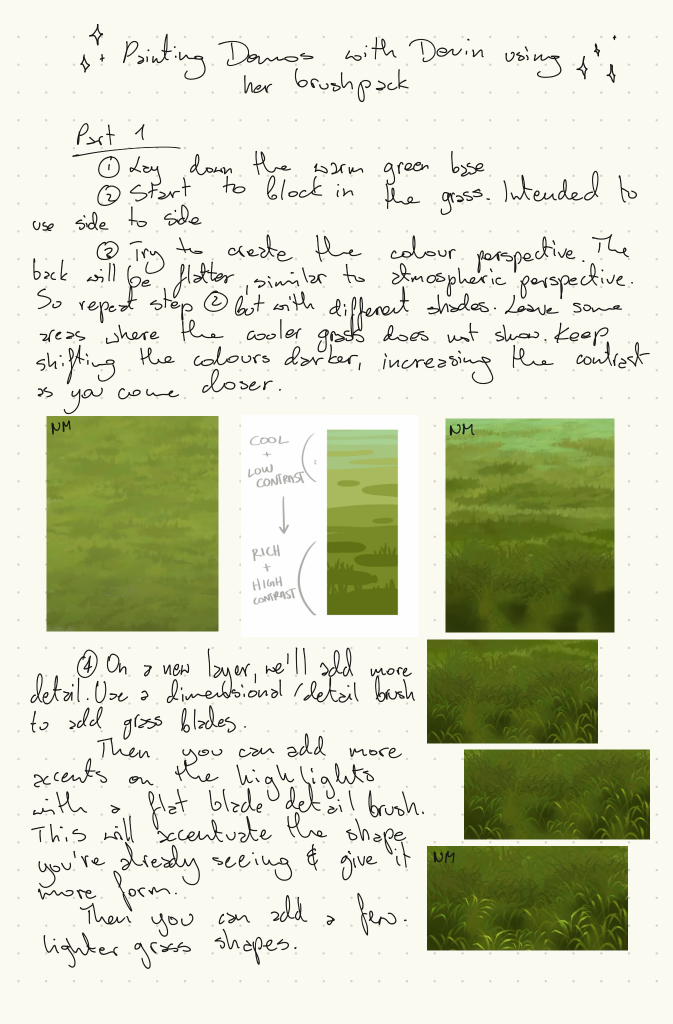 Painting Demos with Devin using
her brushpack
Part 1
① Lay down the warm green base
② Start to block in the grass. Intended to
use side to side
③ Try to create the colour perspective. The
back will be flatter, similar to atmospheric perspective.
So repeat step ② but with different shades. Leave some
areas where the cooler grass does not show. Keep
shifting the colours darker, increasing the contrast
as you come closer.
NM
COOL
+
LOW
CONTRAST
RICH
+
HIGH
CONTRAST
NM
④ On a new layer, we'll add more
detail. Use a dimensional/detail brush
to add grass blades.
Then you can add more
accents on the highlights
with a flat blade detail brush.
This will accentuate the shape
you're already seeing & give it
more form.
Then you can add a few.
lighter grass shapes.
NM